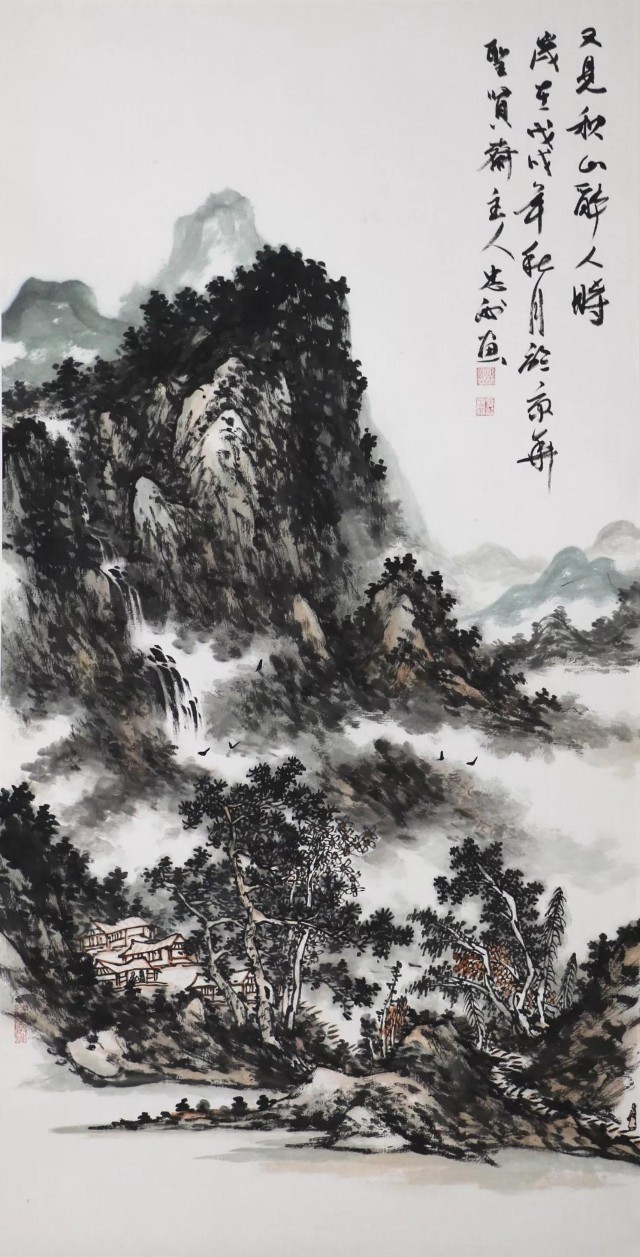 又見秋山醉人時
歲在戊戌年秋月於京華
聖賢齋主人忠画